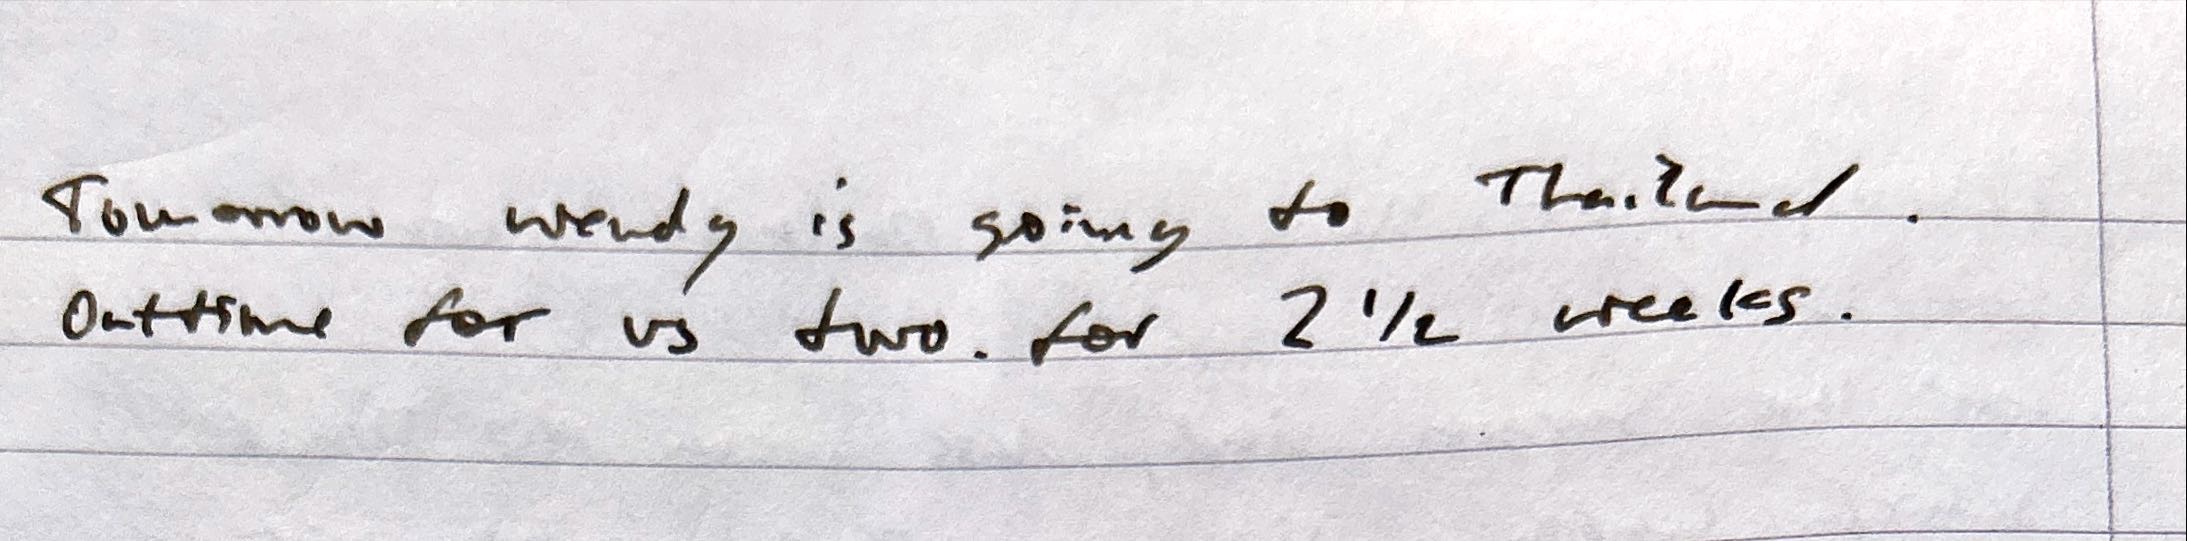 Tomorrow wendy is going to Thailand.
Outtime for us two. for 2 1/2 weeks.